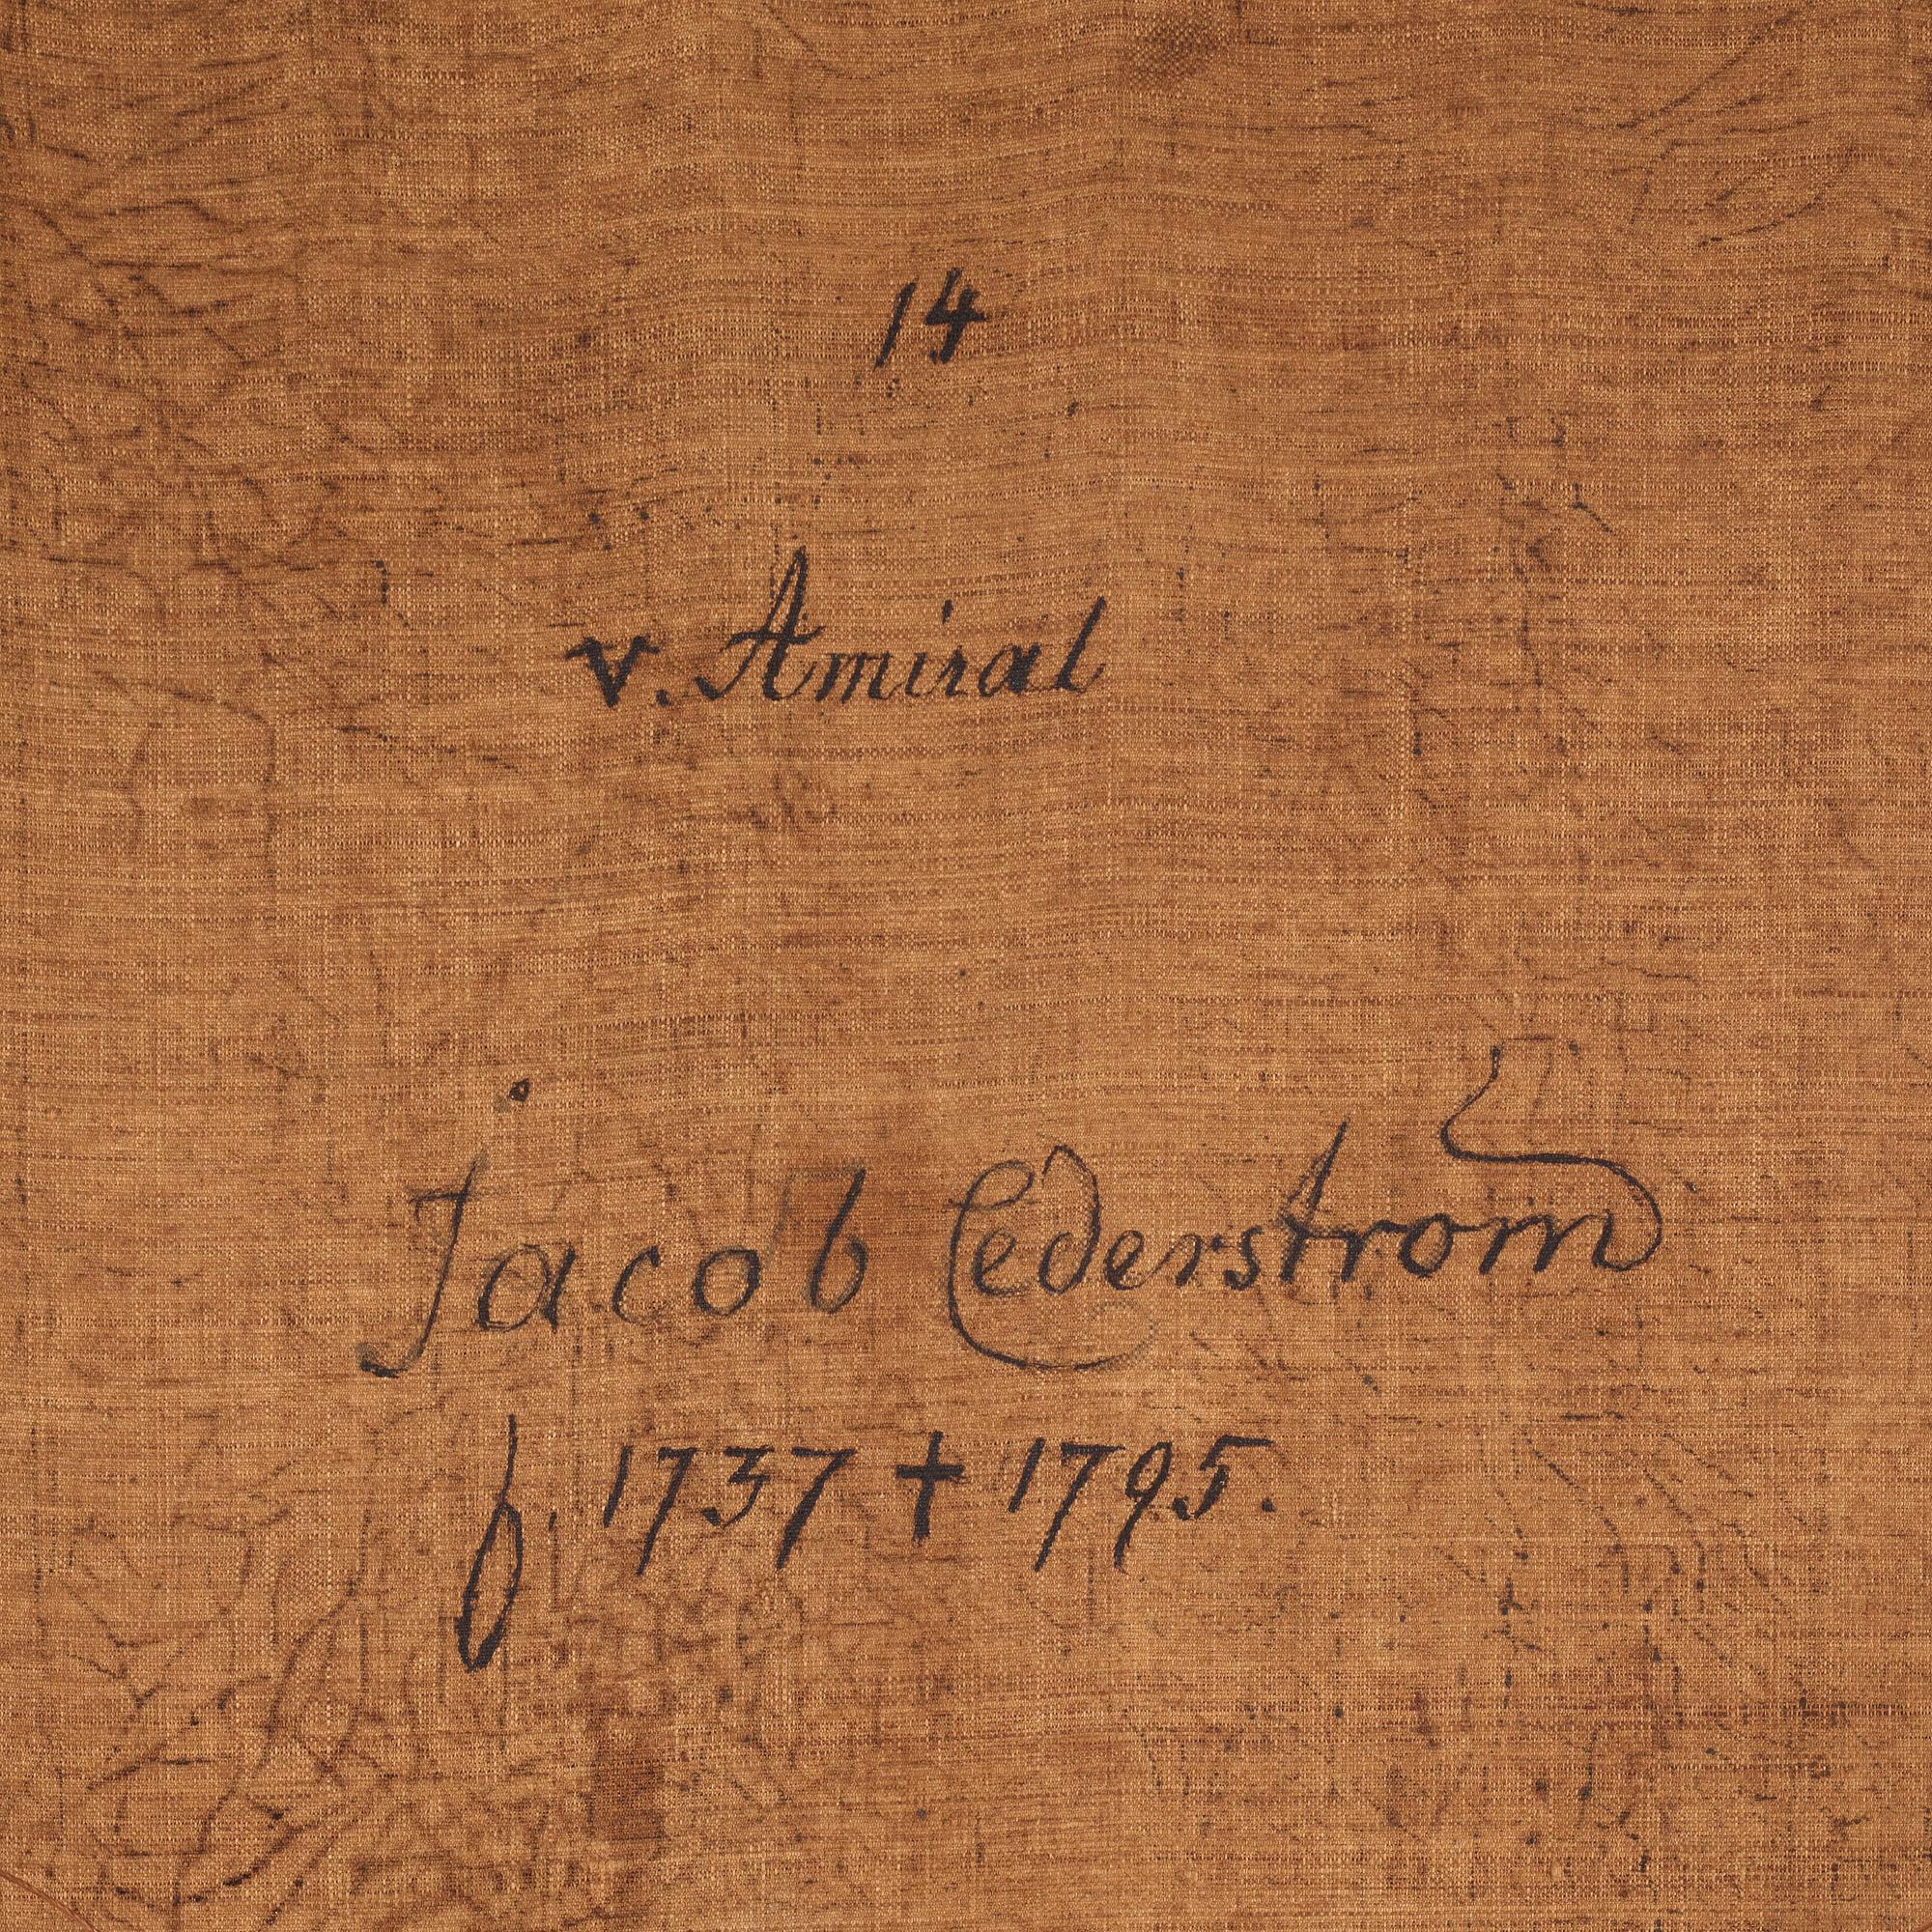 14
v. Amiral
Jacob Cederstrom
f. 1737 † 1795.